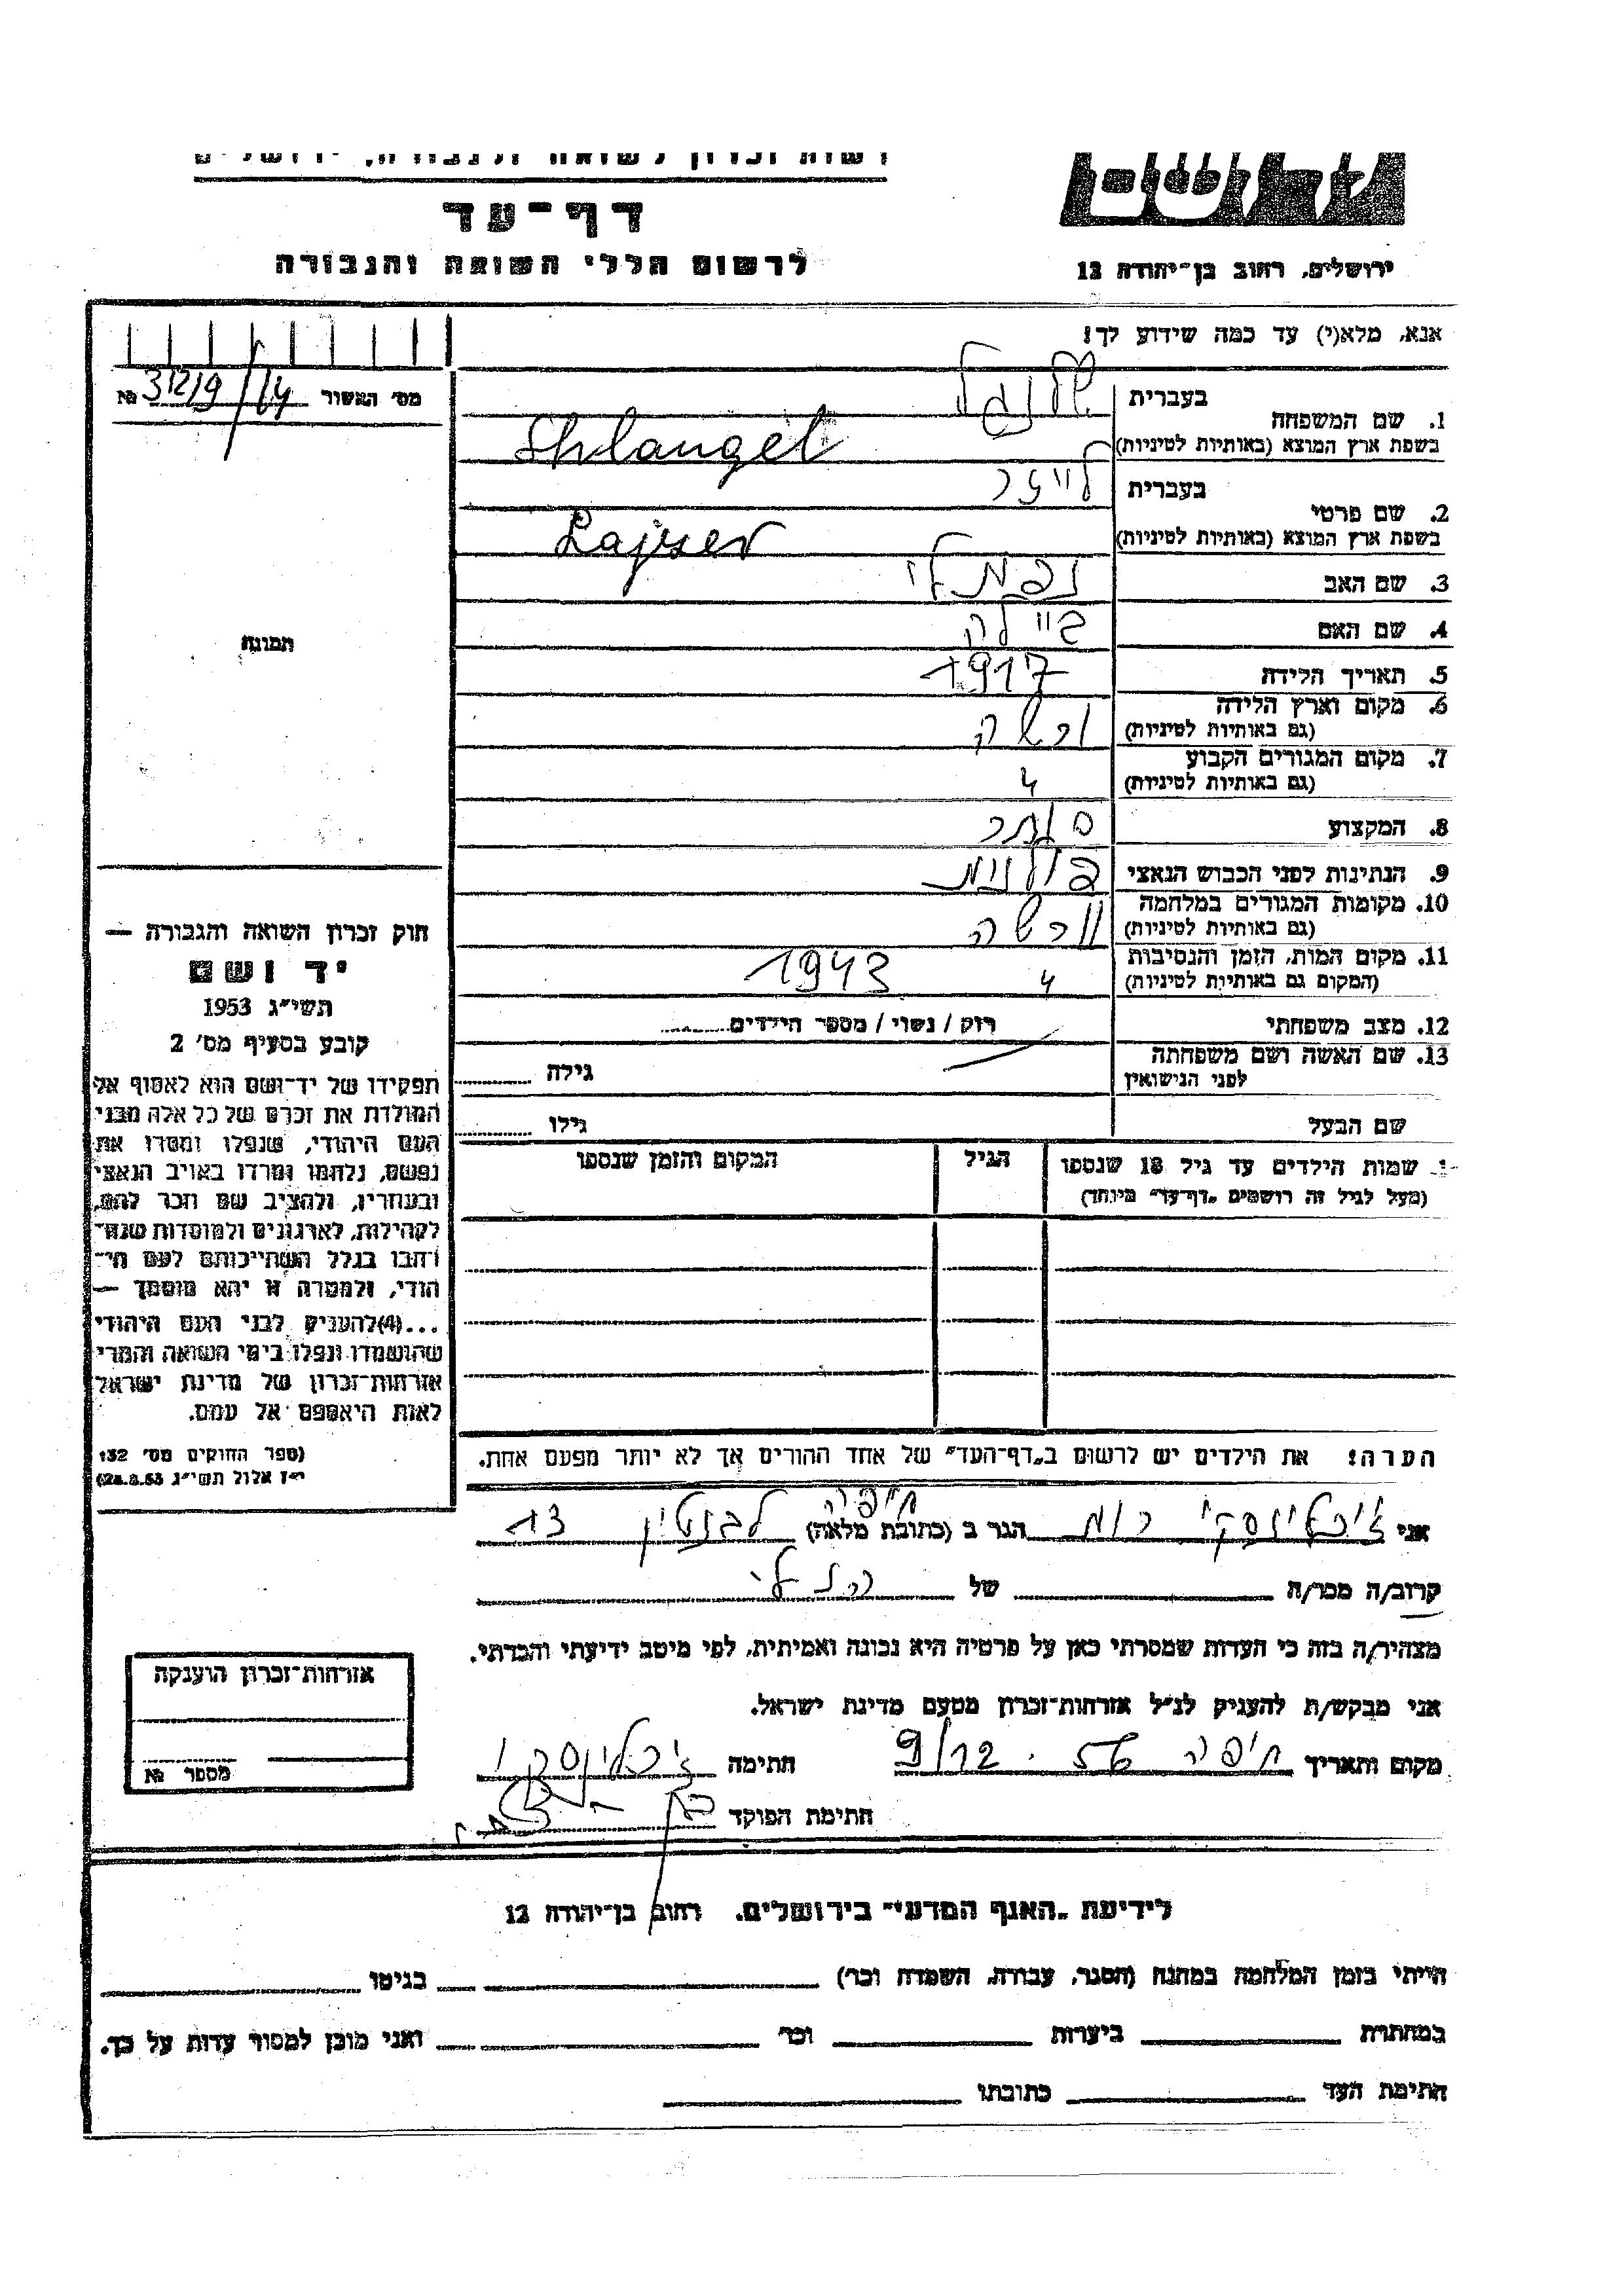 רשות זכרון לשואה ולגבורה, ירושלים
דף-עד
לרשום חללי השואה והגבורה
ירושלים, רחוב בן-יהודה 12
אנא, מלא(י) עד כמה שידוע לך!
מס׳ האשור № 31219/14
1. שם המשפחה בעברית שלנגל
בשפת ארץ המוצא (באותיות לטיניות) Shlangel
2. שם פרטי בעברית לייזר
בשפת ארץ המוצא (באותיות לטיניות) Lajser
3. שם האב נפתלי
4. שם האם ביילה
5. תאריך הלידה 1917
6. מקום וארץ הלידה ורשה
(גם באותיות לטיניות)
7. מקום המגורים הקבוע
(גם באותיות לטיניות)
8. המקצוע סוחר
9. הנתינות לפני הכבוש הנאצי פולנית
10. מקומות המגורים במלחמה וורשה
(גם באותיות לטיניות)
11. מקום המות, הזמן והנסיבות 1943
(המקום גם באותיות לטיניות)
12. מצב משפחתי רוק / נשוי / מספר הילדים
13. שם האשה ושם משפחתה גילה
לפני הנישואין
שם הבעל גילו
שמות הילדים עד גיל 18 שנספו הגיל המקום והזמן שנספו
(מעל לגיל זה רושמים „דף-עד״ מיוחד)
הערה! את הילדים יש לרשום ב„דף-העד״ של אחד ההורים אך לא יותר מפעם אחת.
תמונה
חוק זכרון השואה והגבורה —
יד ושם
תשי״ג 1953
קובע בסעיף מס׳ 2
תפקידו של יד-ושם הוא לאסוף אל
המולדת את זכרם של כל אלה מבני
העם היהודי, שנפלו ומסרו את
נפשם, נלחמו ומרדו באויב הנאצי
ובעוזריו, ולהציב שם וזכר להם,
לקהילות, לארגונים ולמוסדות שנח-
רבו בגלל השתייכותם לעם הי-
הודי, ולמטרה זו יהא מוסמך —
...(4)להעניק לבני העם היהודי
שהושמדו ונפלו בימי השואה והמרי
אזרחות-זכרון של מדינת ישראל
לאות היאספם אל עמם.
(ספר החוקים מס׳ 132
י״ז אלול תשי״ג 28.8.53)
אני רות הגר ב (כתובת מלאה) חיפה לבונטין 13
קרוב/ה מכר/ה של
מצהיר/ה בזה כי העדות שמסרתי כאן על פרטיה היא נכונה ואמיתית, לפי מיטב ידיעתי והכרתי.
אני מבקש/ת להעניק לנ״ל אזרחות-זכרון מטעם מדינת ישראל.
מקום ותאריך חיפה 9/12.56 חתימה
חתימת הפוקד
אזרחות-זכרון הוענקה
מספר №
לידיעת „האגף המדעי״ בירושלים, רחוב בן-יהודה 12
הייתי בזמן המלחמה במחנה (הסגר, עבודה, השמדה וכו׳) בגיטו
במחתרת ביערות וכו׳ ואני מוכן למסור עדות על כך.
חתימת העד כתובתו